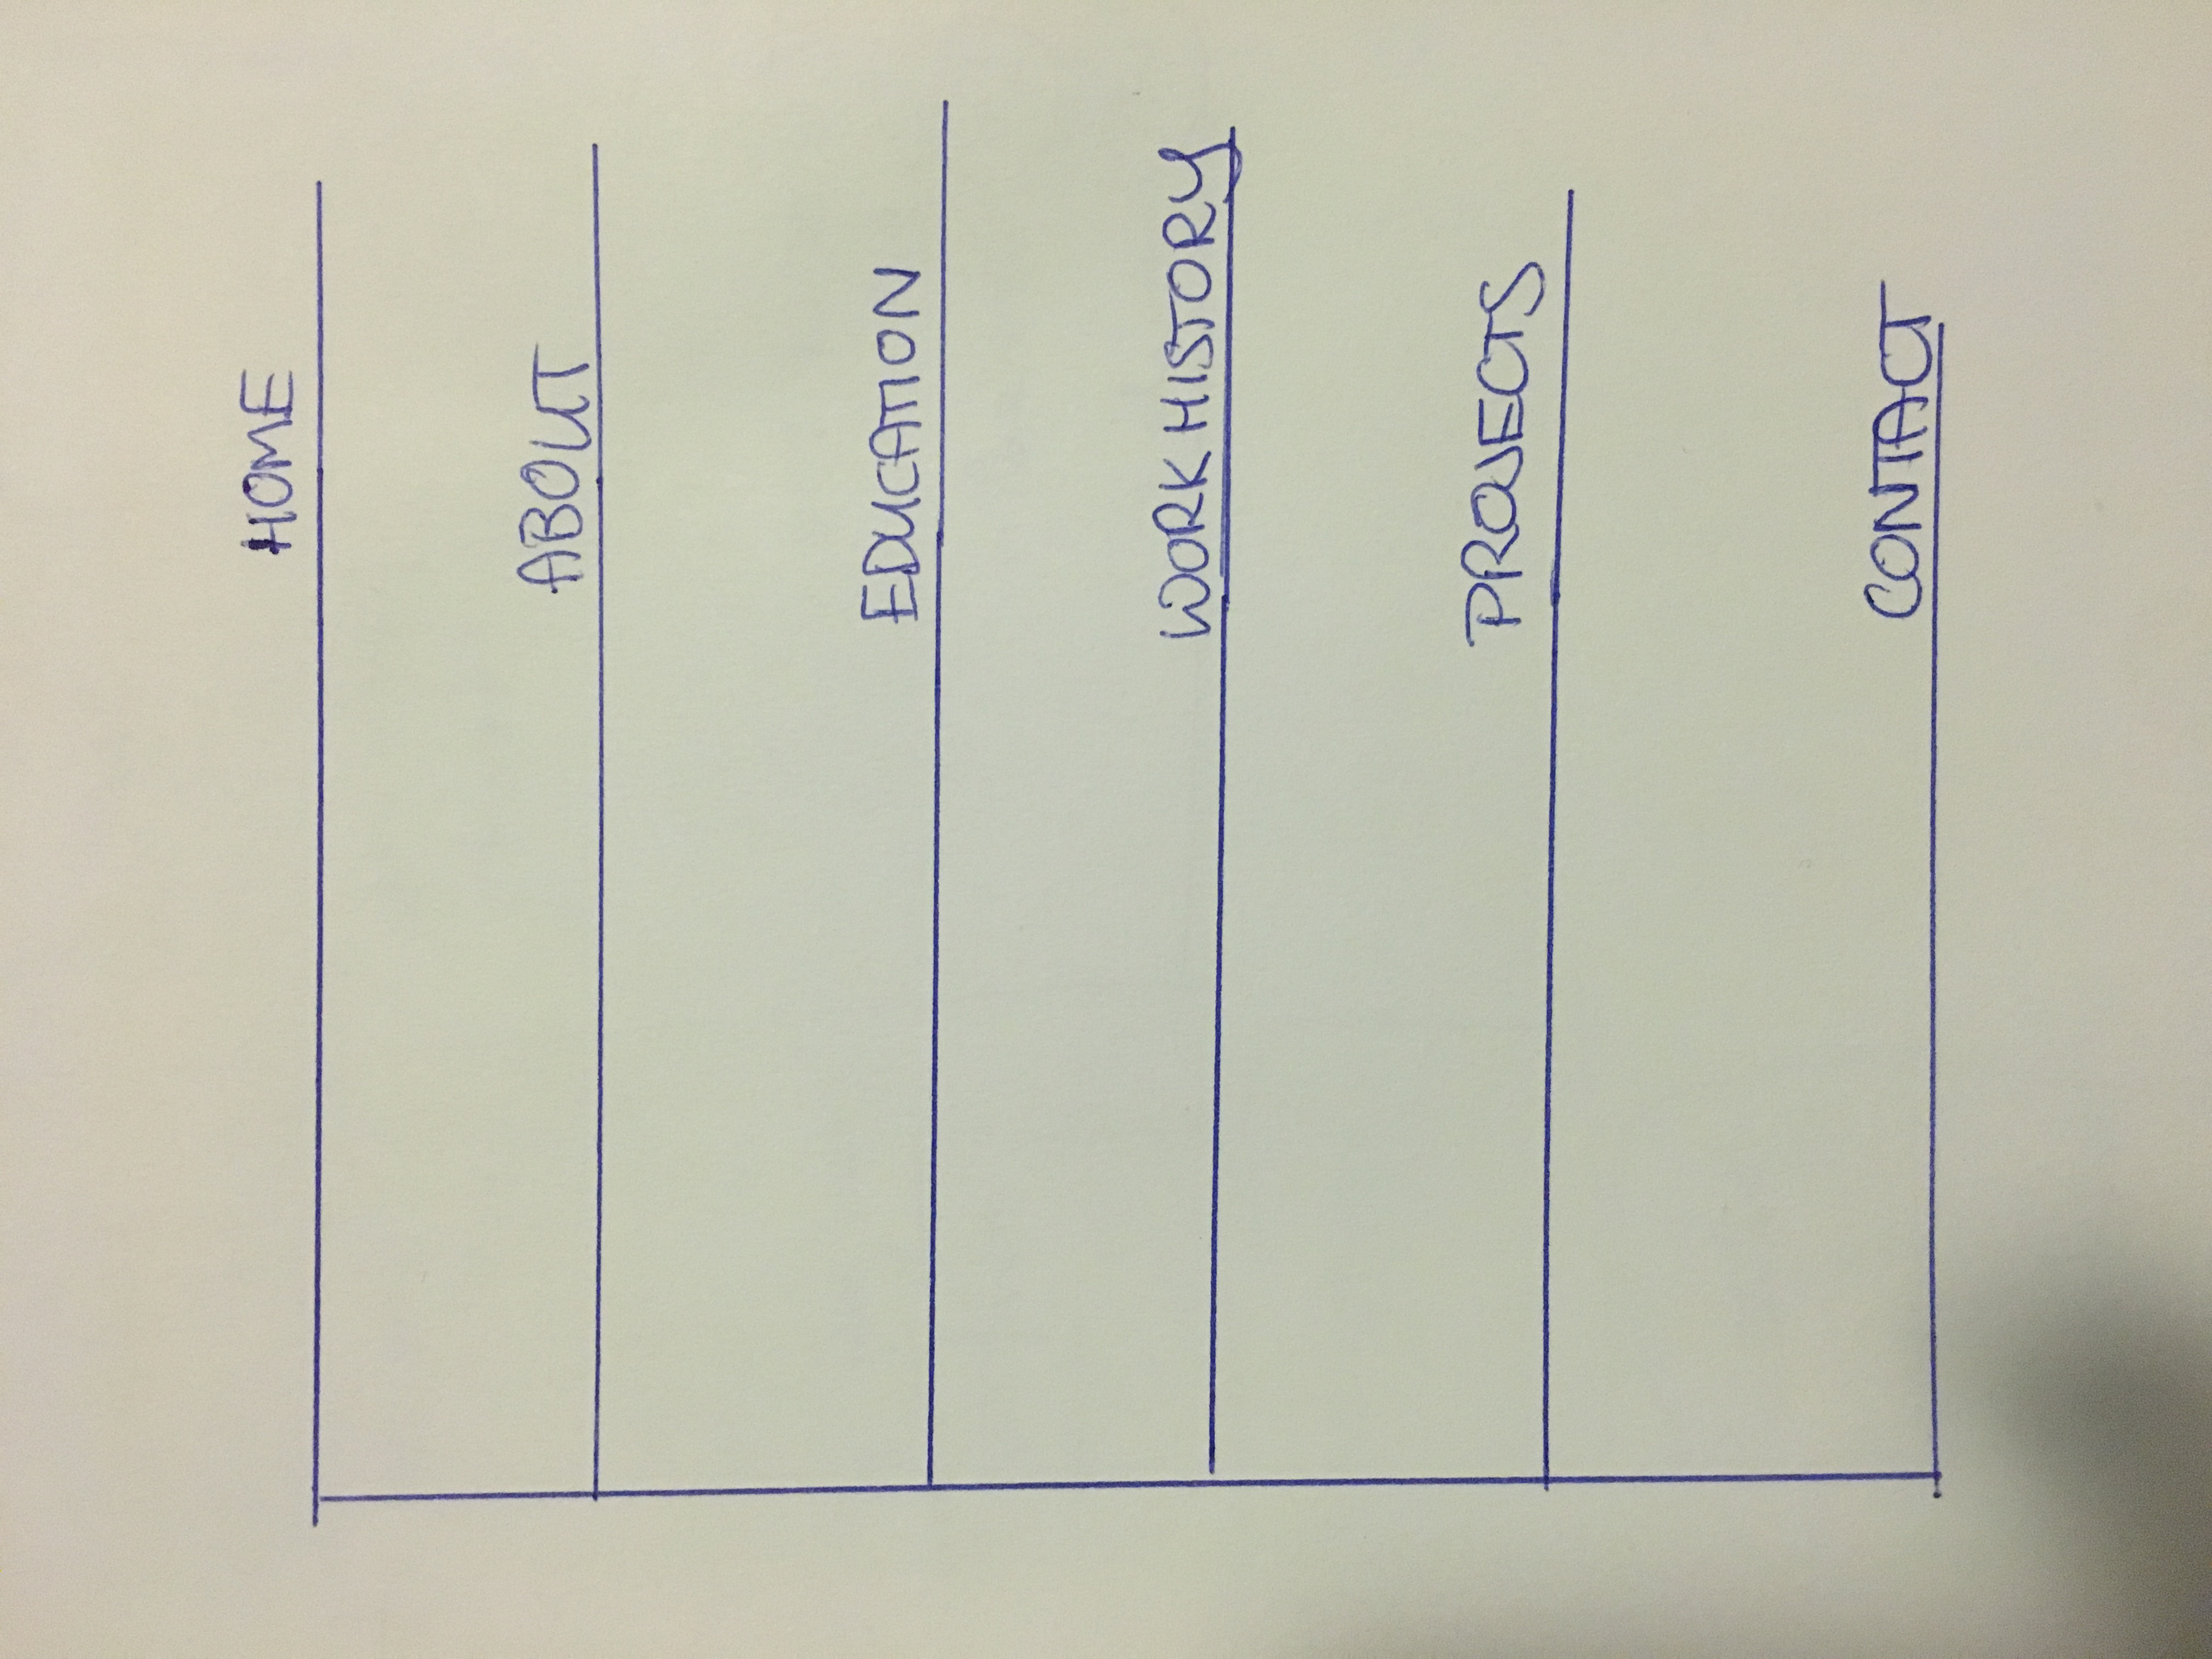 HOME
ABOUT
EDUCATION
WORK HISTORY
PROJECTS
CONTACT